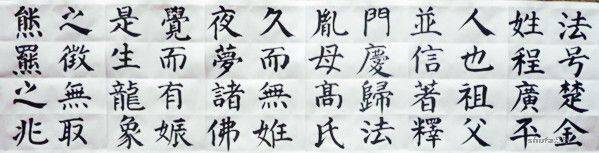 法号楚金
姓程廣平
人也祖父
並信著釋
門慶歸法
胤母髙氏
久而無妊
夜夢諸佛
覺而有娠
是生龍象
之徵無取
熊羆之兆